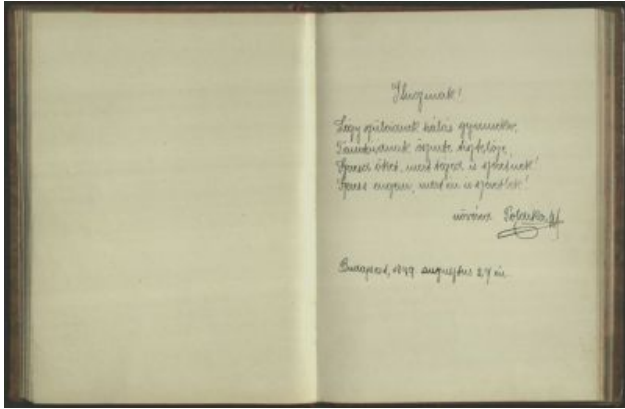 Légy szüleidnek hálás gyermeke,
Tanítóidnak őszinte tisztelője,
Szeresd őket, mert téged is szeretnek!
Szeress engem, mert én is szeretlek!
nővéred
Budapest, 1899 augusztus 27 én